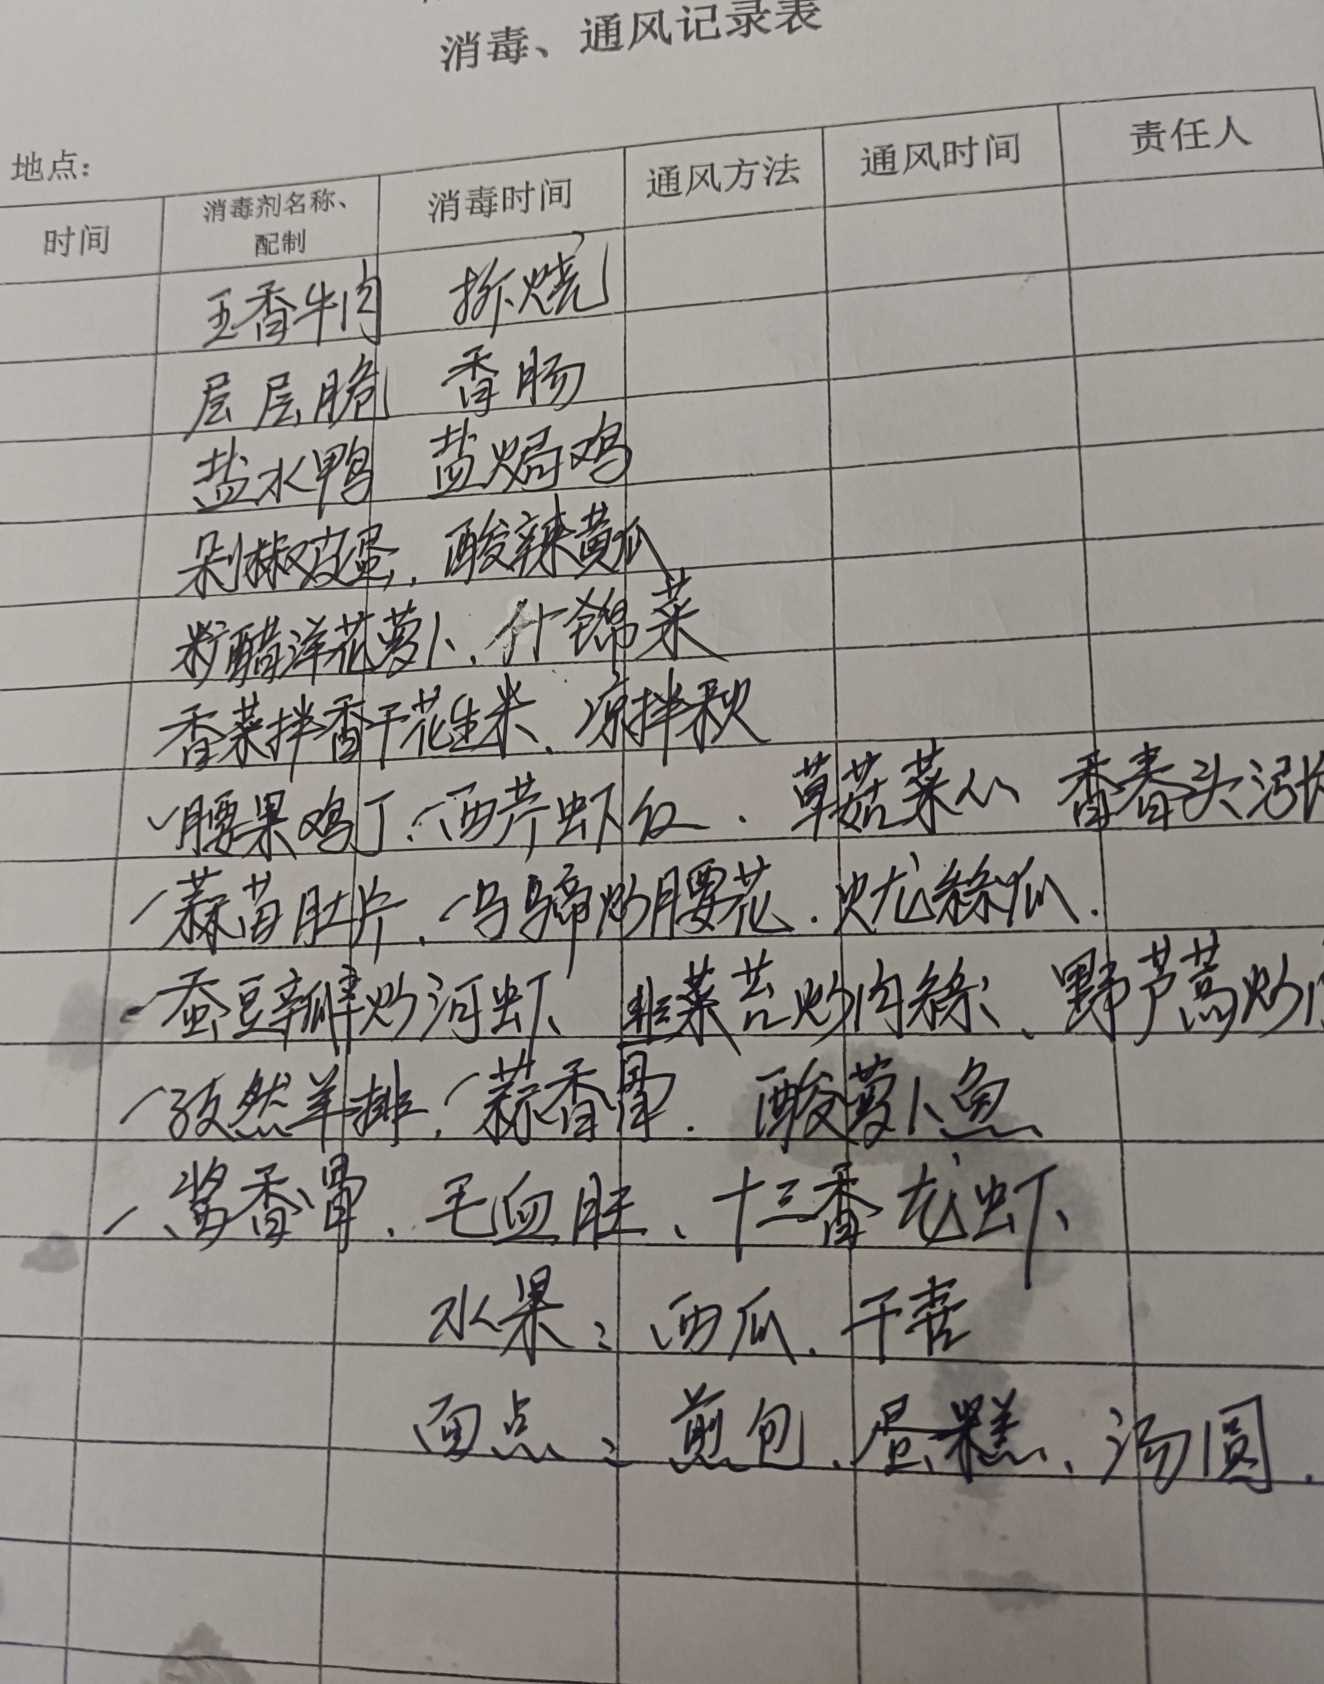 消毒、通风记录表
地点：
时间 消毒剂名称、配制 消毒时间 通风方法 通风时间 责任人
五香牛肉 拆烧
层层脆 香肠
盐水鸭 盐焗鸡
剁椒皮蛋、酸辣黄瓜
籽醋洋花萝卜、什锦菜
香菜拌香干花生米、凉拌秋
腰果鸡丁、西芹虾仁、草菇菜心 香春头
蒜苗肚片、马蹄炒腰花、龙絲瓜.
蚕豆瓣炒河虾、韭菜苔炒肉絲、野芦蒿炒
孜然羊排、蒜香骨. 酸萝卜鱼
酱香骨、毛血旺、十三香龙虾、
水果：西瓜、干喜
面点：煎包、蛋糕、汤圆.